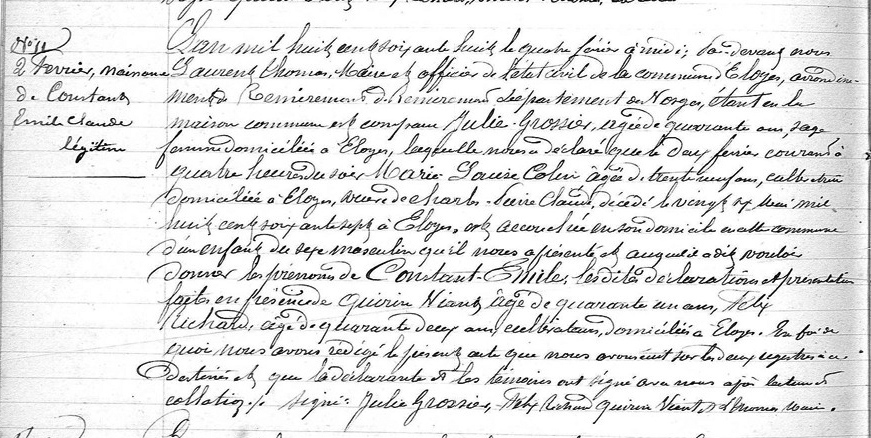 N° 11
2 février, naissance
de Constant
Emile Claude
légitime
L'an mil huit cent soixante huit le quatre février à midi; par devant nous
Laurent Thomas, Maire et officier de l'état civil de la commune d'Eloyes, arrondisse-
ment de Remiremont de Remiremont département des Vosges, étant en la
maison commune est comparue Julie Grossier, agée de quarante ans, sage
femme domiciliée à Eloyes, laquelle nous a déclaré que le deux février courant à
quatre heures du soir Marie Laure Colin âgée de trente neuf ans, cultivatrice
domiciliée à Eloyes, veuve de Charles-Pierre Claude, décédé le vingt six Mai mil
huit cent soixante sept à Eloyes, est accouchée en son domicile en cette commune
d'un enfant du sexe masculin qu'il nous a présenté et auquel a dit vouloir
donner les prénoms de Constant-Emile, les dites déclarations et présentation
faites en présence de Quirin Viant âgé de quarante un ans, Felix
Richard, âgé de quarante deux ans, cultivateurs, domiciliés à Eloyes. En foi de
quoi nous avons rédigé le présent acte que nous avons inscrit sur les deux registres à ce
destinés et que la déclarante et les témoins ont signé avec nous après lecture et
collation./. signé: Julie Grossier, Felix Richard Quirin Viant, L. Thomas maire.